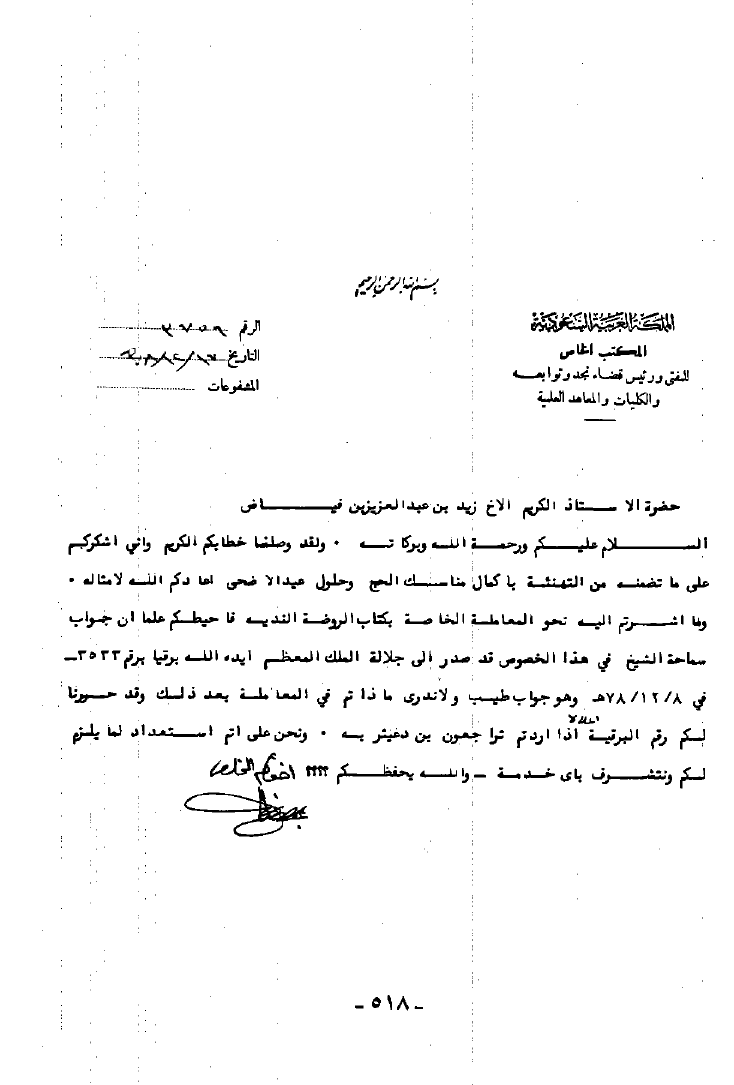 بسم الله الرحمن الرحيم
المملكة العربية السعودية
المكتب الخاص
للمفتي ورئيس قضاء نجد وتوابعه
والكليات والمعاهد العلمية
الرقم
التاريخ
المشفوعات
حضرة الاستاذ الكريم الاخ زيد بن عبدالعزيز بن فياض
السلام عليكم ورحمة الله وبركاته ٠ ولقد وصلنا خطابكم الكريم واني اشكركم
على ما تضمنه من التهنئة باكمال مناسك الحج وحلول عيد الاضحى اعادكم الله لامثاله ٠
وما اشرتم اليه نحو المعاملة الخاصة بكتاب الروضة النديه فاحيطكم علما ان جواب
سماحة الشيخ في هذا الخصوص قد صدر الى جلالة الملك المعظم ايده الله برقيا برقم ٣٥٣٣ــ
في ٧٨/١٢/٨هـ وهو جواب طيب ولاندرى ماذا تم في المعاملة بعد ذلك وقد حررنا
لكم رقم البرقية اذا اردتم تراجعون بن دغيثر به ٠ ونحن على اتم استعداد لما يلزم
لكم ونتشرف باى خدمة ــ والله يحفظكم ؟؟؟؟ اخوكم المخلص
ــ ٥١٨ ــ